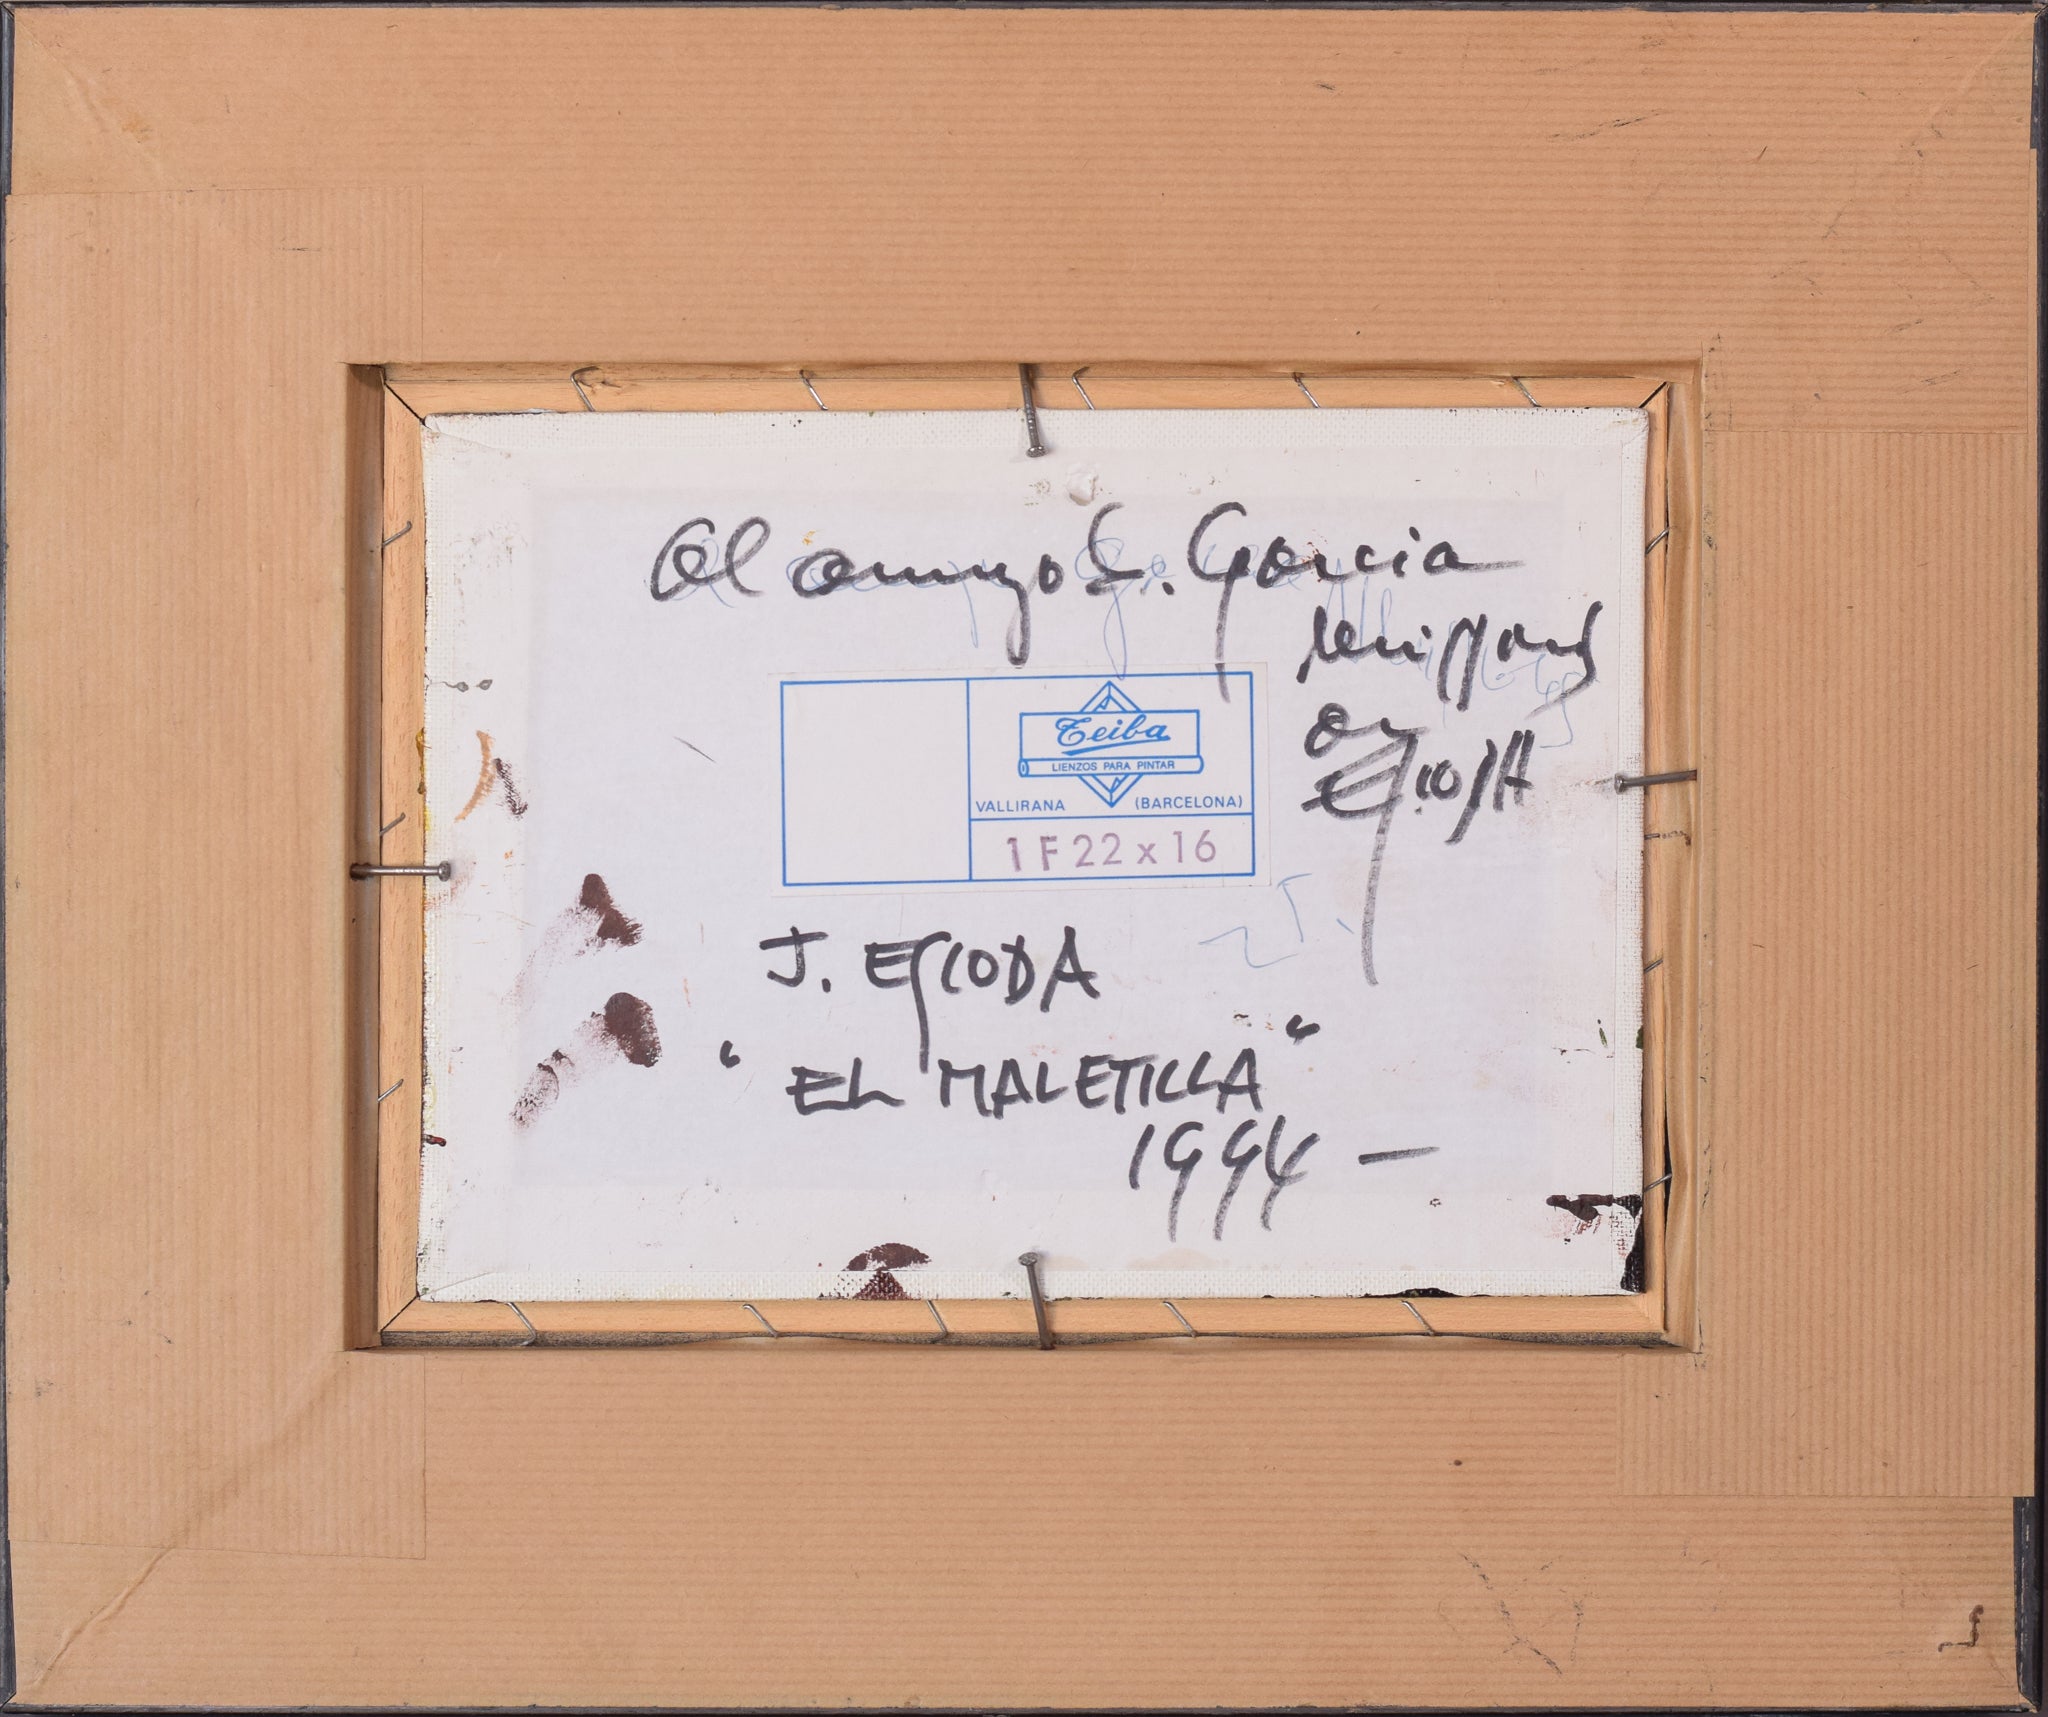 Al amigo S. Garcia
Teiba
LIENZOS PARA PINTAR
VALLIRANA (BARCELONA)
1 F 22 x 16
J. ESCODA
" EL MALETILLA "
1994 -